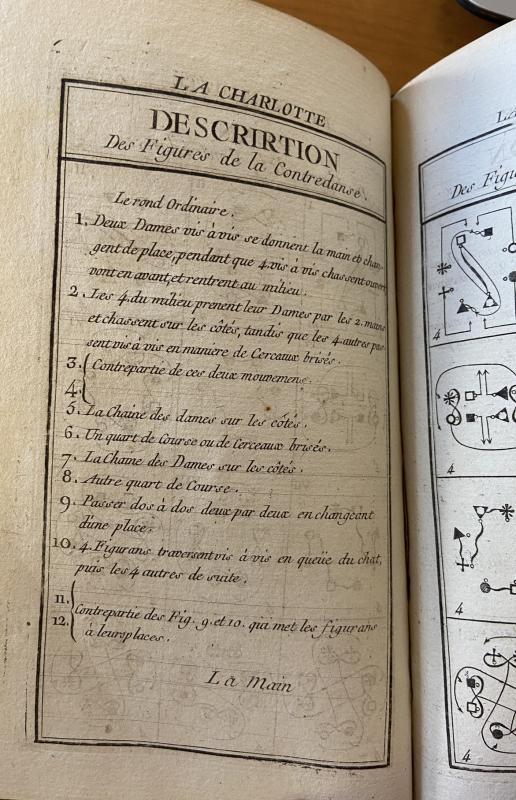 LA CHARLOTTE
DESCRIRTION
Des Figures de la Contredanse.
Le rond Ordinaire.
1. Deux Dames vis à vis se donnent la main et chan-
gent de place, pendant que 4. vis à vis chassent ouvert
vont en avant, et rentrent au milieu.
2. Les 4. du milieu prenent leur Dames par les 2. mains
et chassent sur les côtés, tandis que les 4. autres pas-
sent vis à vis en maniere de Cerceaux brisés.
3. Contrepartie de ces deux mouvemens.
4.
5. La Chaine des dames sur les côtés.
6. Un quart de Course ou de Cerceaux brisés.
7. La Chaine des Dames sur les côtés.
8. Autre quart de Course.
9. Passer dos à dos deux par deux en changeant
d'une place.
10. 4. Figurans traversent vis à vis en queüe du chat,
puis les 4 autres de suite.
11.
12. Contrepartie des Fig. 9. et 10. qui met les figurans
à leurs places.
La Main
LA
Des Figu
4
4
4
4